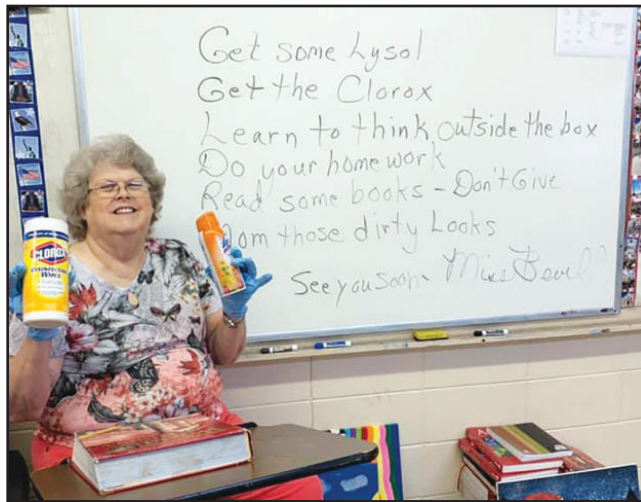 Get some Lysol
Get the Clorox
Learn to think outside the box
Do your homework
Read some books - Don't Give
Mom those dirty Looks
See you soon - Miss
CLOROX
DISINFECTING
WIPES